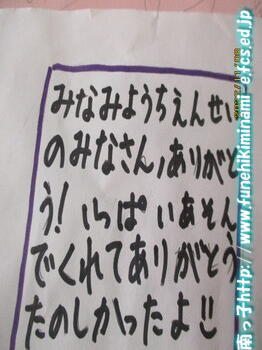 みなみようちえんせい
のみなさん,ありがと
う! いっぱいあそん
でくれてありがとう
たのしかったよ!!
南っ子http://www.funehikiminami-e.fcs.ed.jp